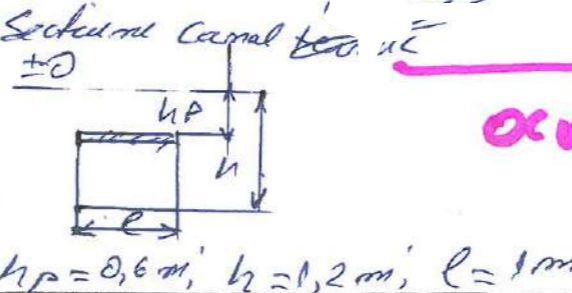 Sectiune Canal
±0
hp
h
l
hp = 0,6 m; h = 1,2 m; l = 1 m